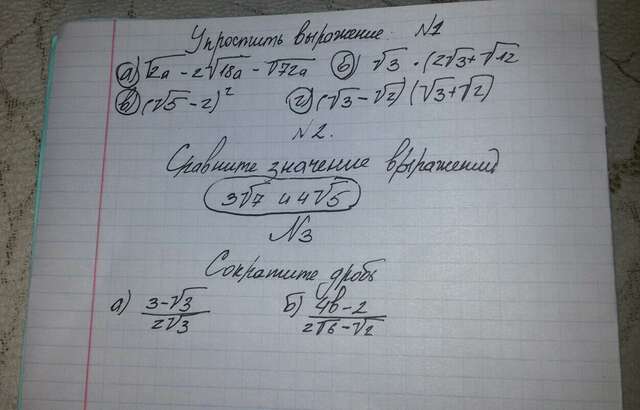 Упростить выражение. №1
а) √2a - 2√18a - √72a б) √3 · (2√3 + √12
в) (√5 - 2)² г) (√3 - √2) (√3 + √2)
№2.
Сравните значение выражений
3√7 и 4√5
№3
Сократите дробь
а) (3-√3)/(2√3) б) (4b-2)/(2√b-√2)